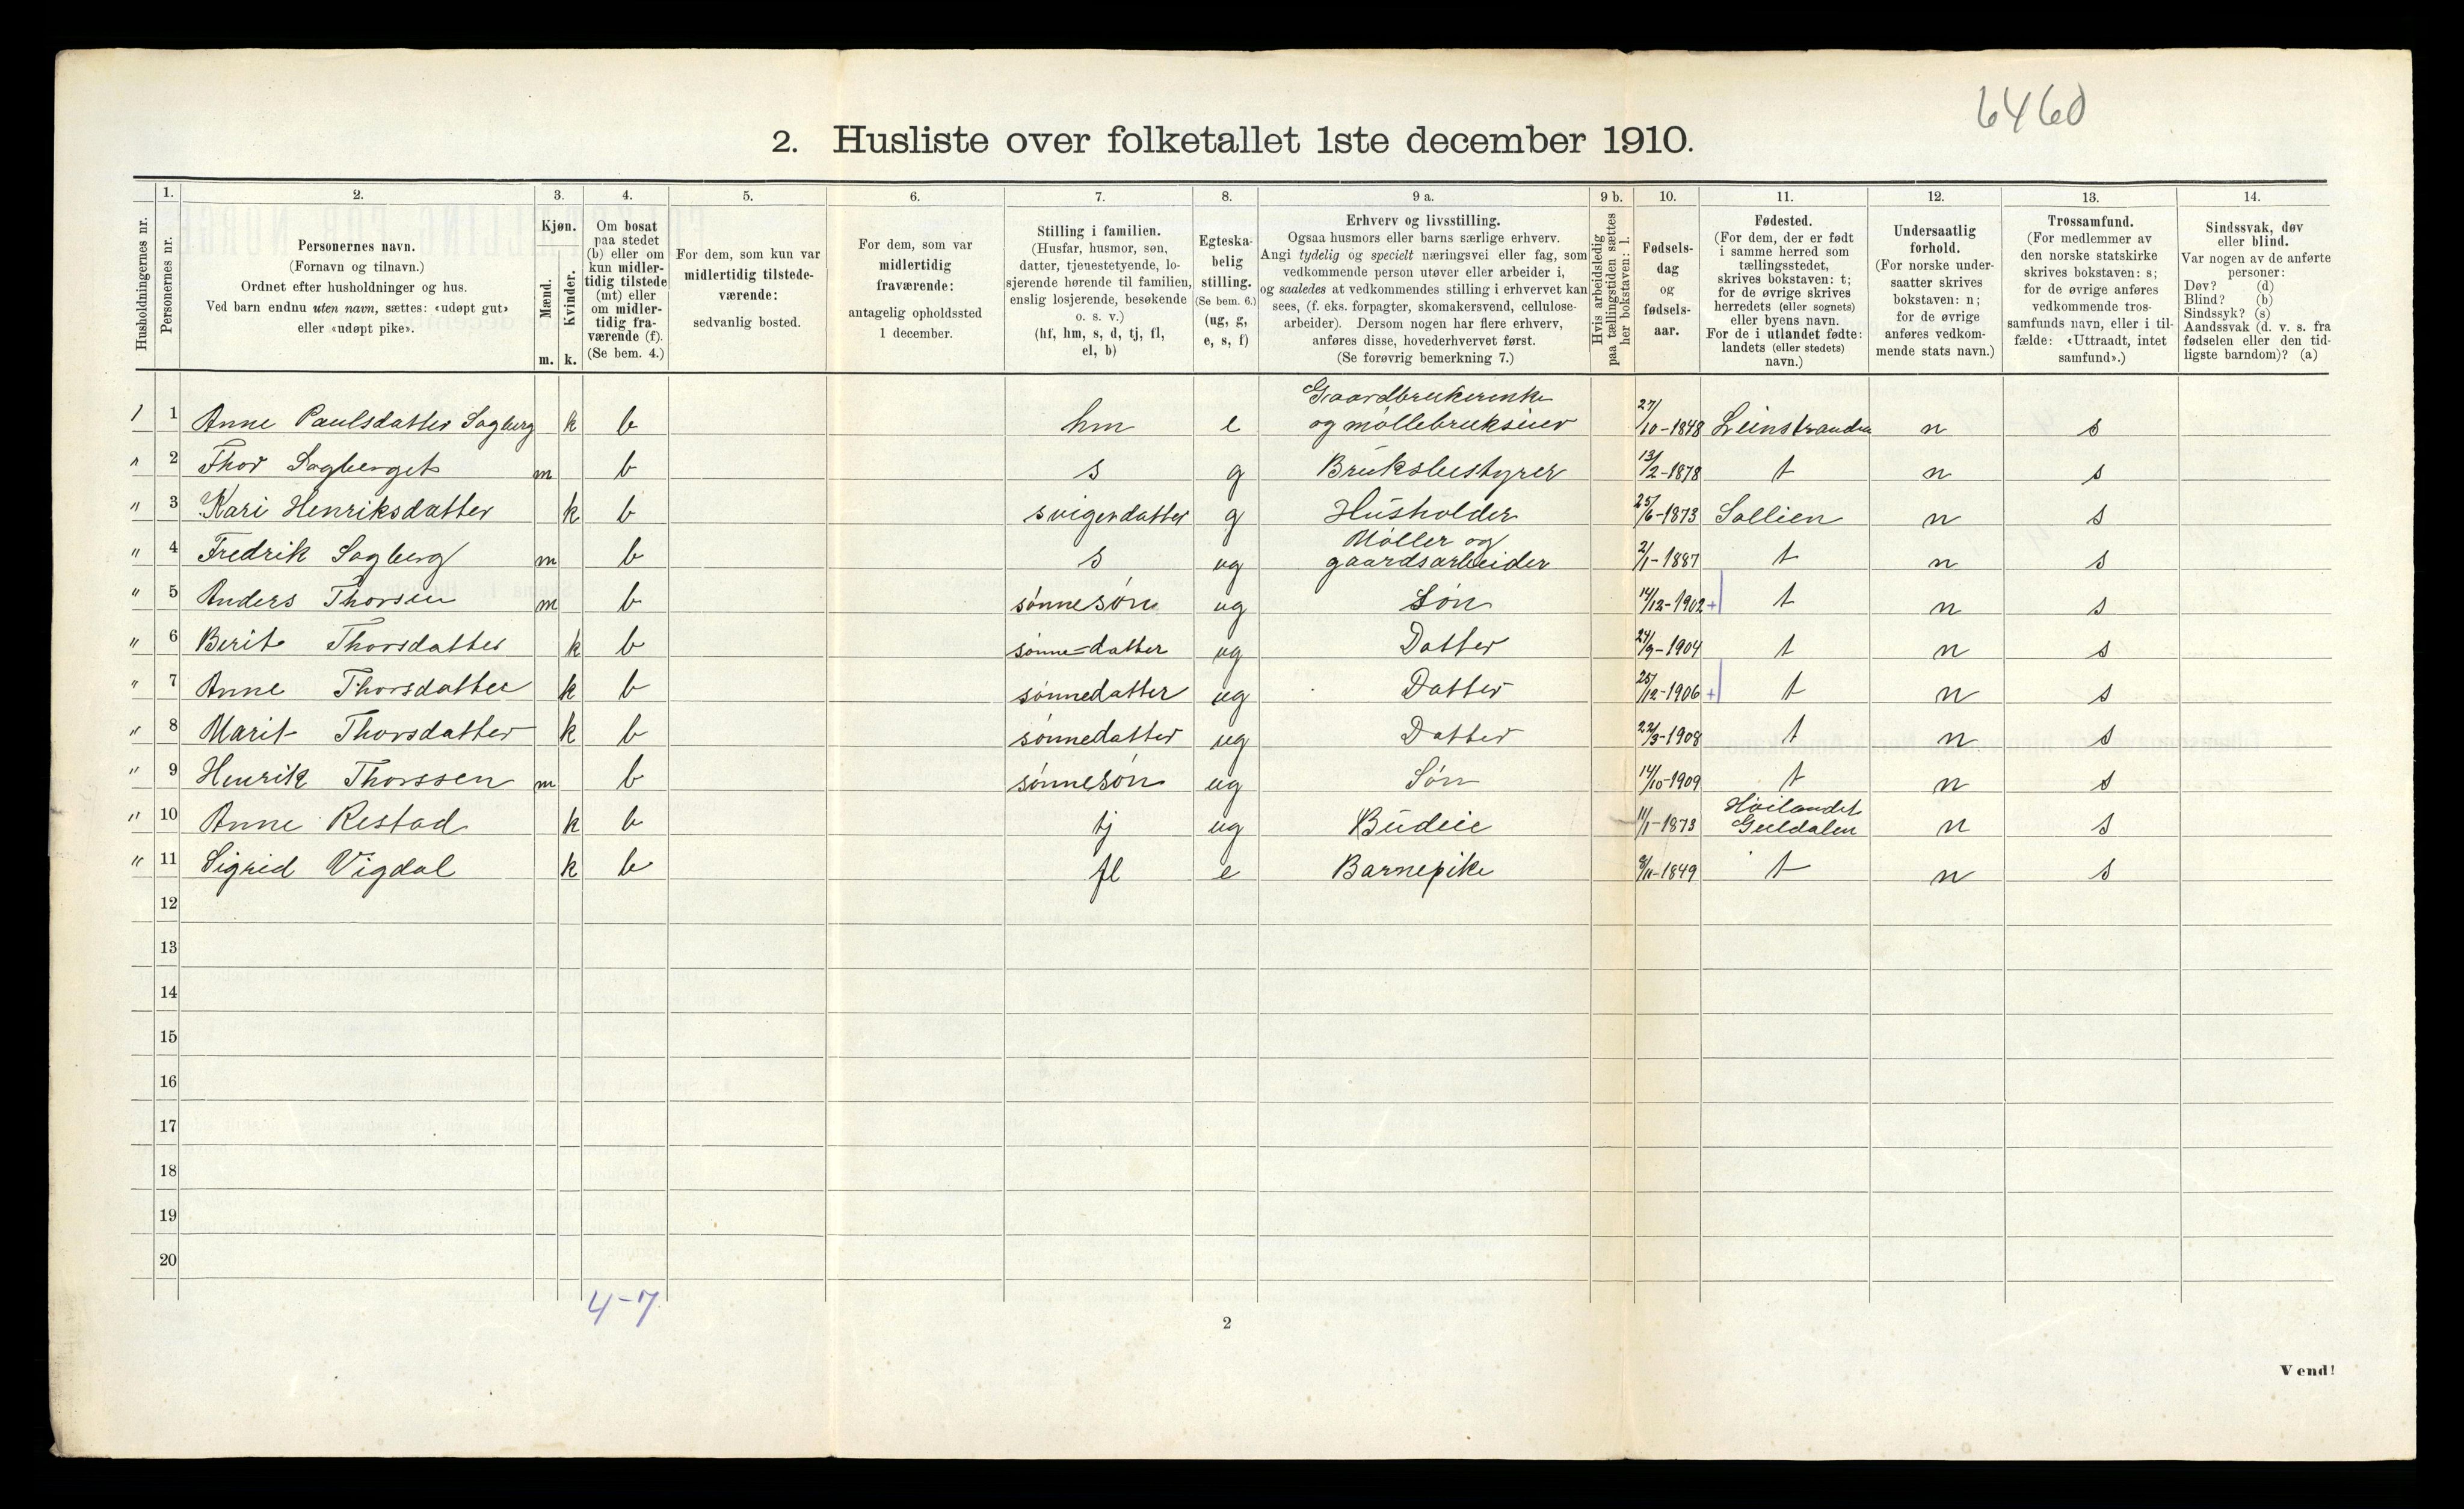 6460
2. Husliste over folketallet 1ste december 1910.
Husholdningernes nr.
1. Personernes nr.
2. Personernes navn.
(Fornavn og tilnavn.)
Ordnet efter husholdninger og hus.
Ved barn endnu uten navn, sættes: «udøpt gut»
eller «udøpt pike».
3. Kjøn.
Mænd. m.
Kvinder. k.
4. Om bosat
paa stedet
(b) eller om
kun midler-
tidig tilstede
(mt) eller
om midler-
tidig fra-
værende (f).
(Se bem. 4.)
5. For dem, som kun var
midlertidig tilstede-
værende:
sedvanlig bosted.
6. For dem, som var
midlertidig
fraværende:
antagelig opholdssted
1 december.
7. Stilling i familien.
(Husfar, husmor, søn,
datter, tjenestetyende, lo-
sjerende hørende til familien,
enslig losjerende, besøkende
o. s. v.)
(hf, hm, s, d, tj, fl,
el, b)
8. Egteska-
belig
stilling.
(Se bem. 6.)
(ug, g,
e, s, f)
9 a. Erhverv og livsstilling.
Ogsaa husmors eller barns særlige erhverv.
Angi tydelig og specielt næringsvei eller fag, som
vedkommende person utøver eller arbeider i,
og saaledes at vedkommendes stilling i erhvervet kan
sees, (f. eks. forpagter, skomakersvend, cellulose-
arbeider). Dersom nogen har flere erhverv,
anføres disse, hovederhvervet først.
(Se forøvrig bemerkning 7.)
9 b. Hvis arbeidsledig
paa tællingstiden sættes
her bokstaven: l.
10. Fødsels-
dag
og
fødsels-
aar.
11. Fødested.
(For dem, der er født
i samme herred som
tællingsstedet,
skrives bokstaven: t;
for de øvrige skrives
herredets (eller sognets)
eller byens navn.
For de i utlandet fødte:
landets (eller stedets)
navn.)
12. Undersaatlig
forhold.
(For norske under-
saatter skrives
bokstaven: n;
for de øvrige
anføres vedkom-
mende stats navn.)
13. Trossamfund.
(For medlemmer av
den norske statskirke
skrives bokstaven: s;
for de øvrige anføres
vedkommende tros-
samfunds navn, eller i til-
fælde: «Uttraadt, intet
samfund».)
14. Sindssvak, døv
eller blind.
Var nogen av de anførte
personer:
Døv? (d)
Blind? (b)
Sindssyk? (s)
Aandssvak (d. v. s. fra
fødselen eller den tid-
ligste barndom)? (a)
1 1 Anne Paulsdatter Sagberg k b hm e Gaardbrukerenke og møllebrukseier 27/10-1848 Leinstranden n s
" 2 Thor Sagberget m b s g Bruksbestyrer 13/2-1878 t n s
" 3 Kari Henriksdatter k b svigerdatter g Husholder 25/6-1873 Sollien n s
" 4 Fredrik Sagberg m b s ug Møller og gaardsarbeider 2/1-1887 t n s
" 5 Anders Thorsen m b sønnesøn ug Søn 14/12-1902 + t n s
" 6 Berit Thorsdatter k b sønne=datter ug Datter 24/9-1904 t n s
" 7 Anne Thorsdatter k b sønnedatter ug Datter 25/12-1906 + t n s
" 8 Marit Thorsdatter k b sønnedatter ug Datter 22/3-1908 t n s
" 9 Henrik Thorssen m b sønnesøn ug Søn 14/10-1909 t n s
" 10 Anne Restad k b tj ug Budeie 11/1-1873 Høilandet Guldalen n s
" 11 Sigrid Vigdal k b fl e Barnepike /11-1849 t n s
12
13
14
15
16
17
18
19
20
4-7
2
Vend!